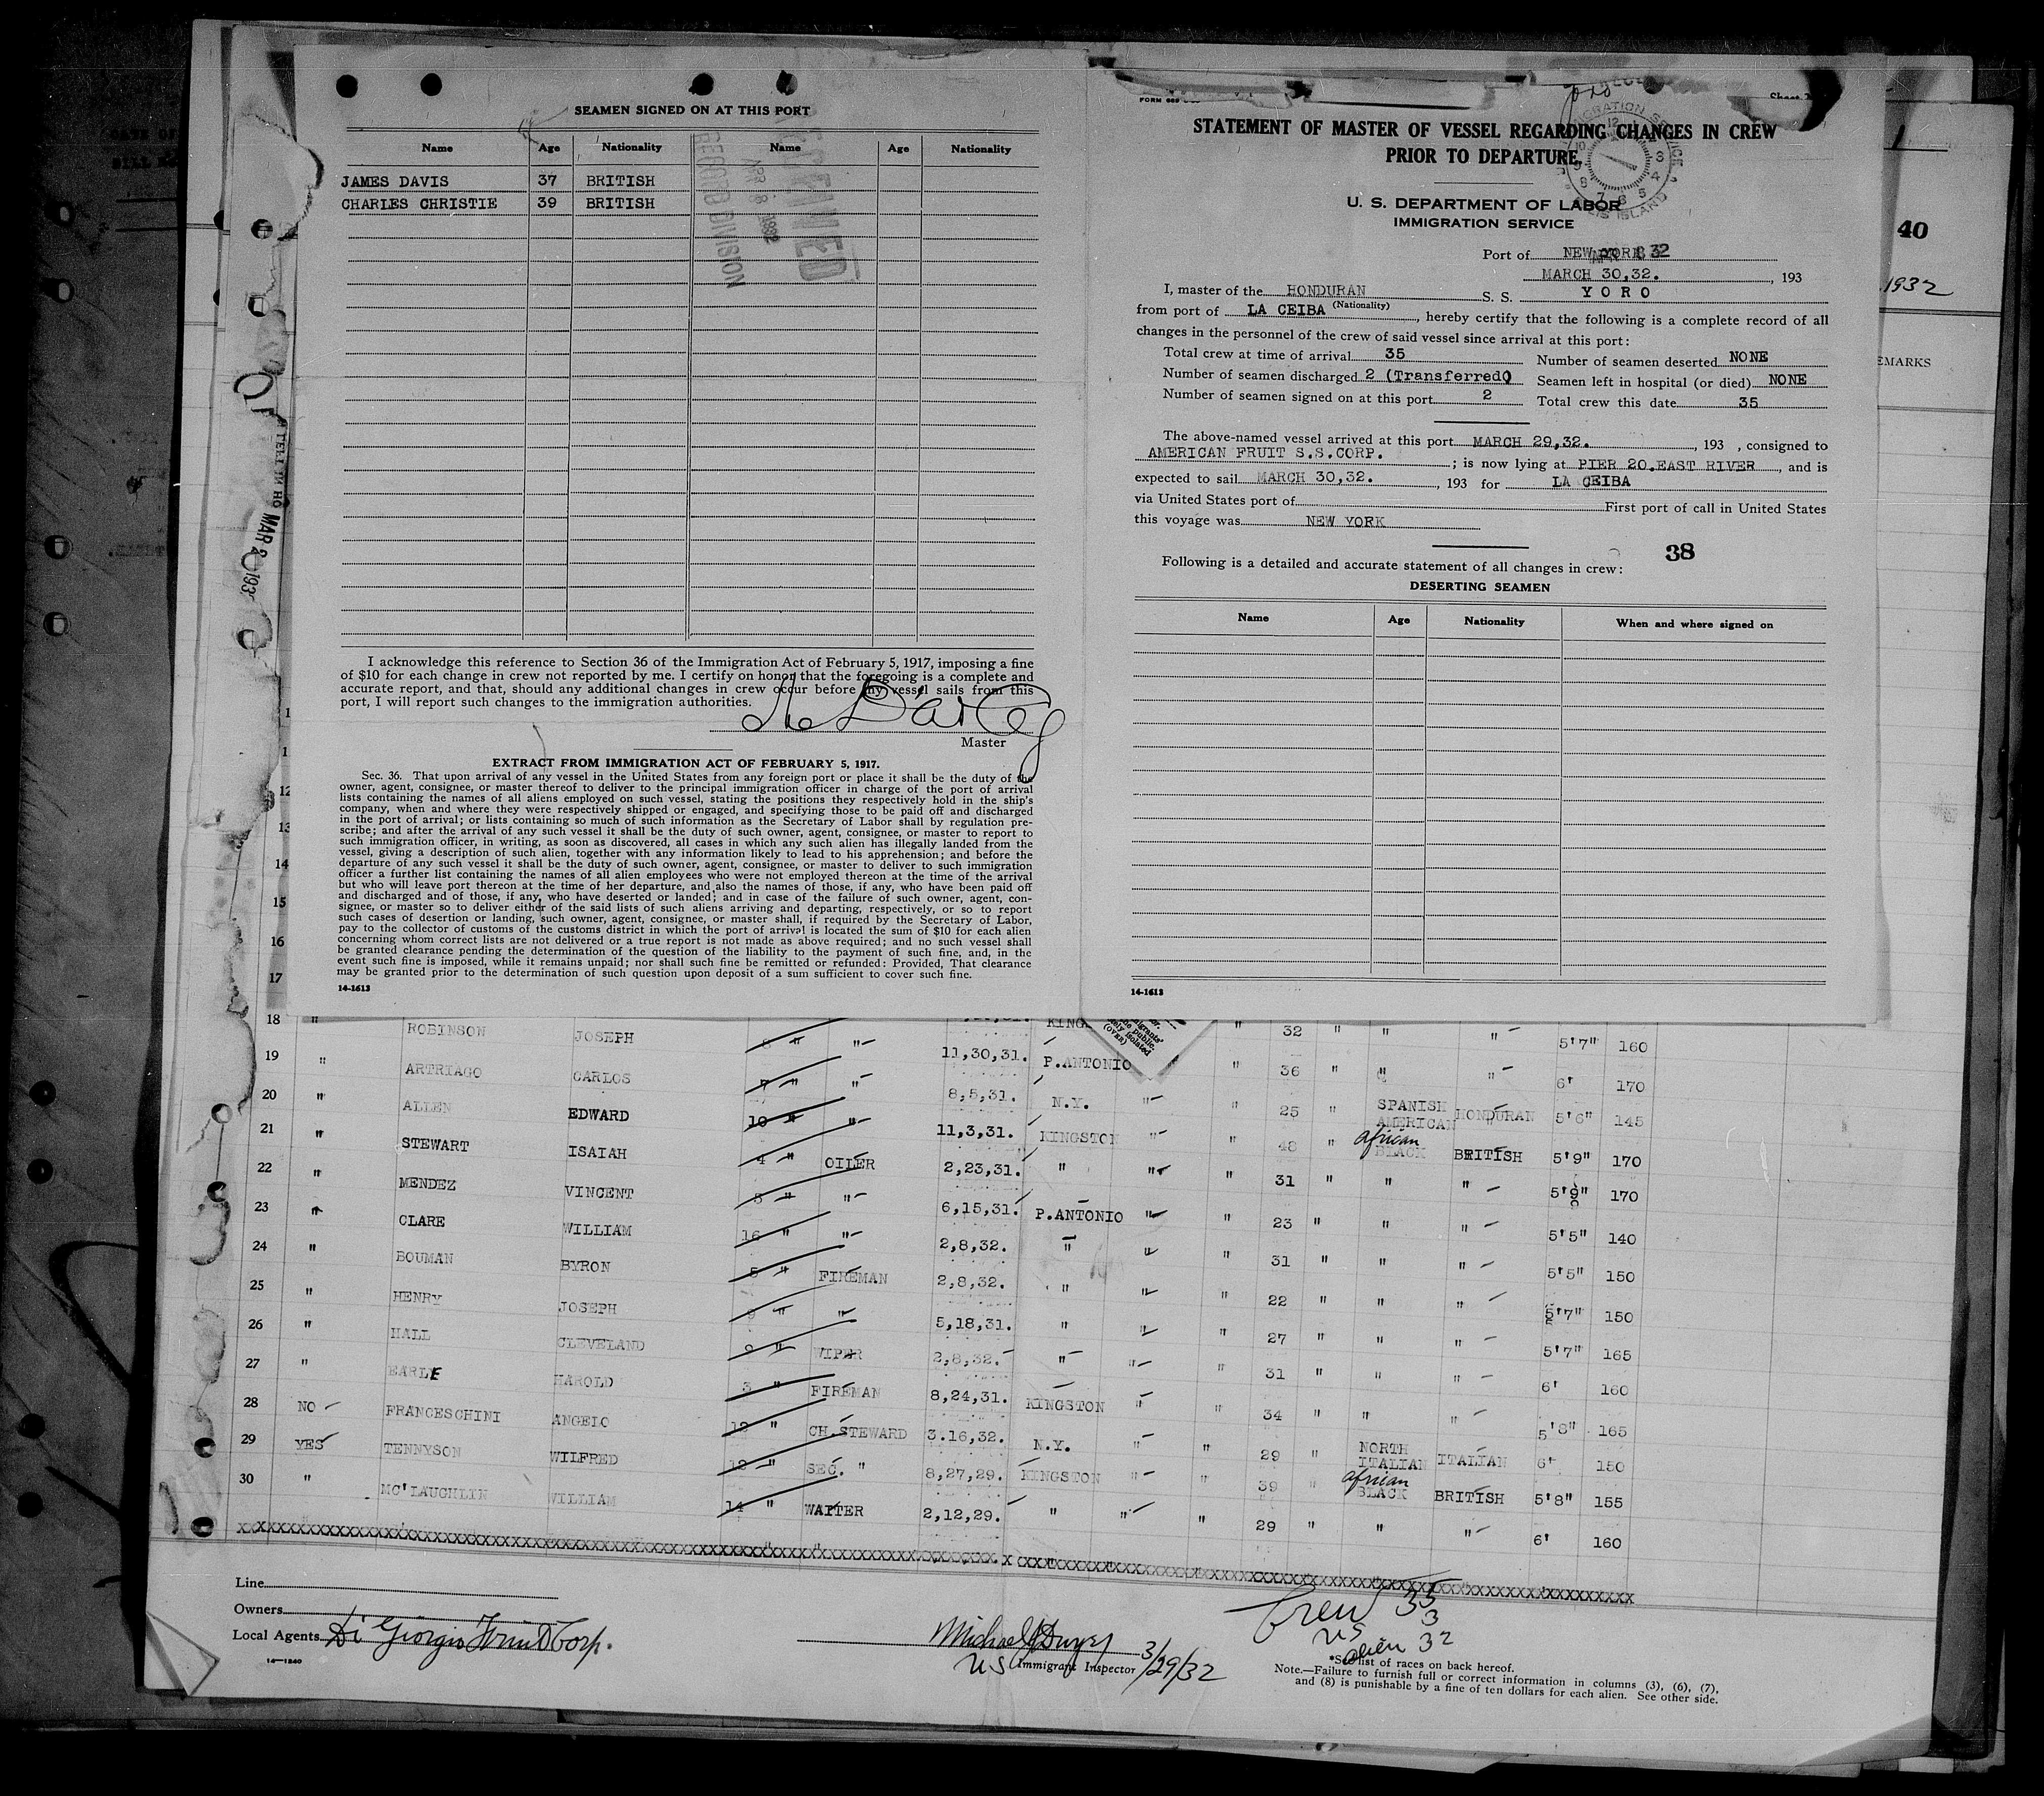 SEAMEN SIGNED ON AT THIS PORT
Name Age Nationality Name Age Nationality
JAMES DAVIS 37 BRITISH
CHARLES CHRISTIE 39 BRITISH
RECEIVED
APR 8 1932
RECORD DIVISION
I acknowledge this reference to Section 36 of the Immigration Act of February 5, 1917, imposing a fine
of $10 for each change in crew not reported by me. I certify on honor that the foregoing is a complete and
accurate report, and that, should any additional changes in crew occur before my vessel sails from this
port, I will report such changes to the immigration authorities.
Master
EXTRACT FROM IMMIGRATION ACT OF FEBRUARY 5, 1917.
Sec. 36. That upon arrival of any vessel in the United States from any foreign port or place it shall be the duty of the
owner, agent, consignee, or master thereof to deliver to the principal immigration officer in charge of the port of arrival
lists containing the names of all aliens employed on such vessel, stating the positions they respectively hold in the ship's
company, when and where they were respectively shipped or engaged, and specifying those to be paid off and discharged
in the port of arrival; or lists containing so much of such information as the Secretary of Labor shall by regulation pre-
scribe; and after the arrival of any such vessel it shall be the duty of such owner, agent, consignee, or master to report to
such immigration officer, in writing, as soon as discovered, all cases in which any such alien has illegally landed from the
vessel, giving a description of such alien, together with any information likely to lead to his apprehension; and before the
departure of any such vessel it shall be the duty of such owner, agent, consignee, or master to deliver to such immigration
officer a further list containing the names of all alien employees who were not employed thereon at the time of the arrival
but who will leave port thereon at the time of her departure, and also the names of those, if any, who have been paid off
and discharged and of those, if any, who have deserted or landed; and in case of the failure of such owner, agent, con-
signee, or master so to deliver either of the said lists of such aliens arriving and departing, respectively, or so to report
such cases of desertion or landing, such owner, agent, consignee, or master shall, if required by the Secretary of Labor,
pay to the collector of customs of the customs district in which the port of arrival is located the sum of $10 for each alien
concerning whom correct lists are not delivered or a true report is not made as above required; and no such vessel shall
be granted clearance pending the determination of the question of the liability to the payment of such fine, and, in the
event such fine is imposed, while it remains unpaid; nor shall such fine be remitted or refunded: Provided, That clearance
may be granted prior to the determination of such question upon deposit of a sum sufficient to cover such fine.
14-1613
STATEMENT OF MASTER OF VESSEL REGARDING CHANGES IN CREW
PRIOR TO DEPARTURE.
U. S. DEPARTMENT OF LABOR
IMMIGRATION SERVICE
Port of NEW YORK
MARCH 30,32. , 193
I, master of the HONDURAN S. S. YORO
(Nationality)
from port of LA CEIBA , hereby certify that the following is a complete record of all
changes in the personnel of the crew of said vessel since arrival at this port:
Total crew at time of arrival 35 Number of seamen deserted NONE
Number of seamen discharged 2 (Transferred) Seamen left in hospital (or died) NONE
Number of seamen signed on at this port 2 Total crew this date 35
The above-named vessel arrived at this port MARCH 29,32. , 193 , consigned to
AMERICAN FRUIT S.S.CORP. ; is now lying at PIER 20,EAST RIVER , and is
expected to sail MARCH 30,32. , 193 for LA CEIBA
via United States port of First port of call in United States
this voyage was NEW YORK
38
Following is a detailed and accurate statement of all changes in crew:
DESERTING SEAMEN
Name Age Nationality When and where signed on
14-1613
40
1932
EMARKS
18 " ROBINSON JOSEPH 8 " " 32 " " " 5'7" 160
19 " ARTRIAGO CARLOS 7 " " 11,30,31. P.ANTONIO " 36 " " " 6' 170
20 " ALLEN EDWARD 10 " " 8,5,31. N.Y. " " 25 " SPANISH AMERICAN HONDURAN 5'6" 145
21 " STEWART ISAIAH 4 " OILER 11,3,31. KINGSTON " " 48 " african BLACK BRITISH 5'9" 170
22 " MENDEZ VINCENT 8 " " 2,23,31. " " " 31 " " " 5'9" 170
23 " CLARE WILLIAM 16 " " 6,15,31. P.ANTONIO " " 23 " " " 5'5" 140
24 " BOUMAN BYRON 5 " FIREMAN 2,8,32. " " " 31 " " " 5'5" 150
25 " HENRY JOSEPH 9 " " 2,8,32. " " " 22 " " " 5'7" 150
26 " HALL CLEVELAND 9 " WIPER 5,18,31. " " " 27 " " " 5'7" 165
27 " EARLE HAROLD 3 " FIREMAN 2,8,32. " " " 31 " " " 6' 160
28 NO FRANCESCHINI ANGELO 12 " CH.STEWARD 8,24,31. KINGSTON " " 34 " " " 5'8" 165
29 YES TENNYSON WILFRED 12 " SEC. " 3.16,32. N.Y. " " 29 " NORTH ITALIAN ITALIAN 6' 150
30 " MC'LAUGHLIN WILLIAM 14 " WAITER 8,27,29. KINGSTON " 39 " african BLACK BRITISH 5'8" 155
2,12,29. " " " 29 " " " 6' 160
Line
Owners
Local Agents Di Giorgio Fruit Corp.
14-1240
Michael J Dwyer 3/29/32
US Immigrant Inspector
Crew 35
US 3
alien 32
*See list of races on back hereof.
Note.—Failure to furnish full or correct information in columns (3), (6), (7),
and (8) is punishable by a fine of ten dollars for each alien. See other side.